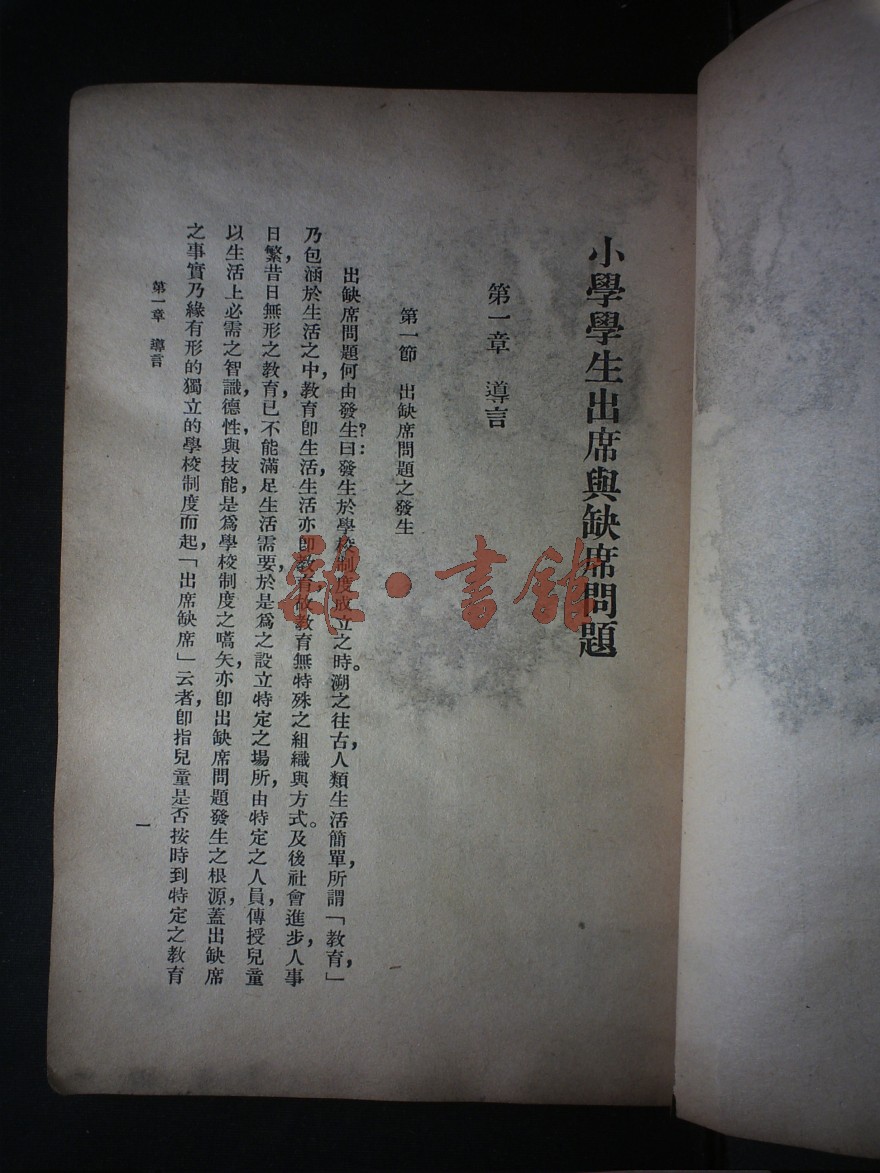 小學學生出席與缺席問題
第一章　導言
第一節　出缺席問題之發生
出缺席問題何由發生？曰：發生於學校制度成立之時。溯之往古，人類生活簡單，所謂「教育，」
乃包涵於生活之中，教育卽生活，生活亦卽教育，故教育無特殊之組織與方式。及後社會進步，人事
日繁，昔日無形之教育，已不能滿足生活需要，於是爲之設立特定之場所，由特定之人員，傳授兒童
以生活上必需之智識，德性，與技能，是爲學校制度之嚆矢，亦卽出缺席問題發生之根源，蓋出缺席
之事實乃緣有形的獨立的學校制度而起，「出席缺席」云者，卽指兒童是否按時到特定之教育
第一章　導言
一
雜·書館